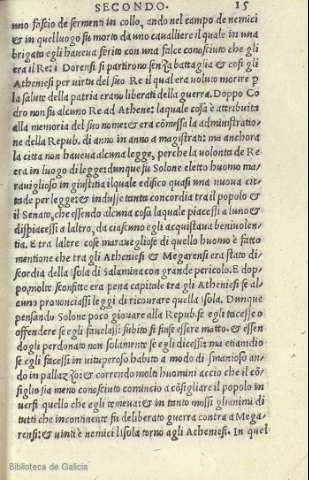 SECONDO. 15
uno fascio de sermenti in collo, ando nel campo de nemici
& in quel luogo fu morto da uno cavalliere il quale in una
brigata egli haveua ferito con una falce conosciuto che gli
era il Re: i Dorensi si partirono senza battaglia & cosi gli
Atheniesi per virtu del suo Re il qual era voluto morire p
la salute della patria erano liberati della guerra. Doppo Co
dro non fu alcuno Re ad Athene: laquale cosa è attribuita
alla memoria del suo nome: & era cõmessa la administratio-
ne della Repub. di anno in anno a magistrati: ma anchora
la citta non haveua alcuna legge, perche la volonta de Re
era in luogo di legge: dunque fu Solone eletto huomo ma-
raviglioso in giustitia ilquale edifico quasi una nuova cit-
tade per legge: & indusse tanta concordia tra il popolo &
il Senato, che essendo alcuna cosa laquale piacessi a luno &
dispiacessi a laltro, da ciascuno egli acquistava benivolen-
tia. E tra laltre cose maravegliose di quello huomo è fatta
mentione che tra gli Atheniesi & Megarensi era stato di-
scordia della Isola di Salamina con grande pericolo. E dop-
po, molte sconfitte era pena capitale tra gli Atheniesi se al-
cuno pronunciassi leggi di ricourare quella isola. Dunque
pensando Solone poco giovare alla Repub. se egli tacesse o
offendere se egli favelassi: subito si finse essere matto. & essen
dogli perdonato non solamente se egli dicessi: ma etiamdio
se egli facessi in vituperoso habito a modo di smanioso an-
do in pallazzo: & correndo molti huomini accio che il cõ-
siglio sia meno conosciuto comincio a cõsigliare il popolo in
versi quello che egli temeva: & in tanto mossi gli animi di
tutti che incontinente fu deliberato guerra contra a Mega-
rensi: & vinti è nemici lisola torno agli Atheniesi. In quel
Biblioteca de Galicia